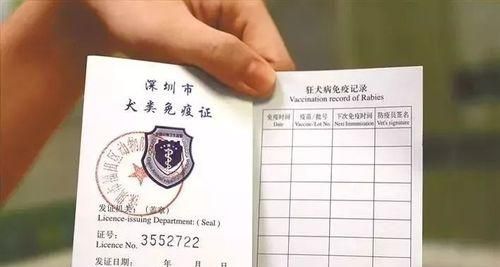 深圳市
犬类免疫证
发证机关：（盖章）
Licence-issuing Department: ( Seal )
证号：
Licence No. 3552722
发证日期： 年 月 日
狂犬病免疫记录
Vaccination record of Rabies
免疫时间 疫苗/批号 下次免疫时间 防疫员签名
Date Vaccine/Lot No. Next Immunization Vet's signature